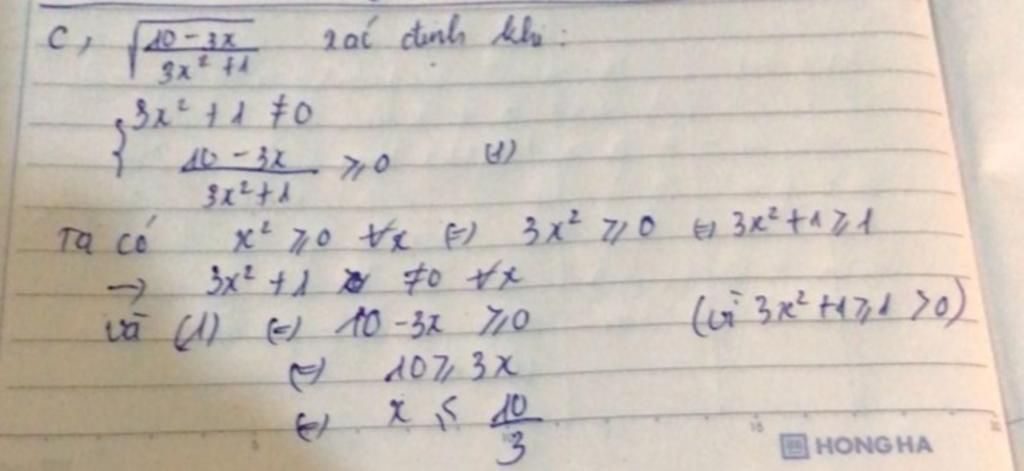 c, √((10 - 3x)/(3x² + 1)) xác định khi:
{ 3x² + 1 ≠ 0
(10 - 3x)/(3x² + 1) ≥ 0 (1)
Ta có x² ≥ 0 ∀x ⇔ 3x² ≥ 0 ⇔ 3x² + 1 ≥ 1
→ 3x² + 1 ≠ 0 ∀x
và (1) ⇔ 10 - 3x ≥ 0 (vì 3x² + 1 ≥ 1 > 0)
⇔ 10 ≥ 3x
⇔ x ≤ 10/3
HONG HA